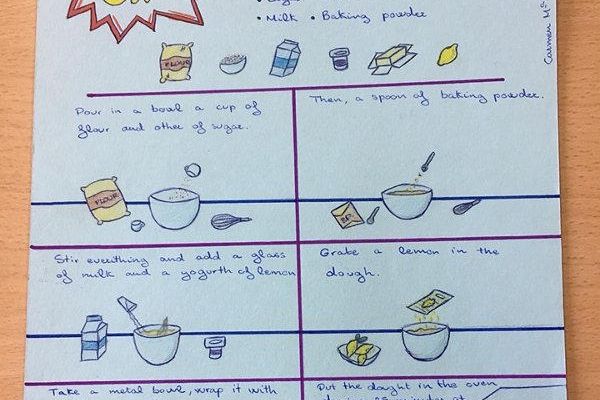 • Milk • Baking powder
Carmen Mª
FLOUR
Pour in a bowl a cup of
flour and other of sugar.
FLOUR
Then, a spoon of baking powder.
B.P.
Stir everithing and add a glass
of milk and a yogurth of lemon
Grate a lemon in the
dough.
Take a metal bowl, wrap it with
Put the dought in the oven